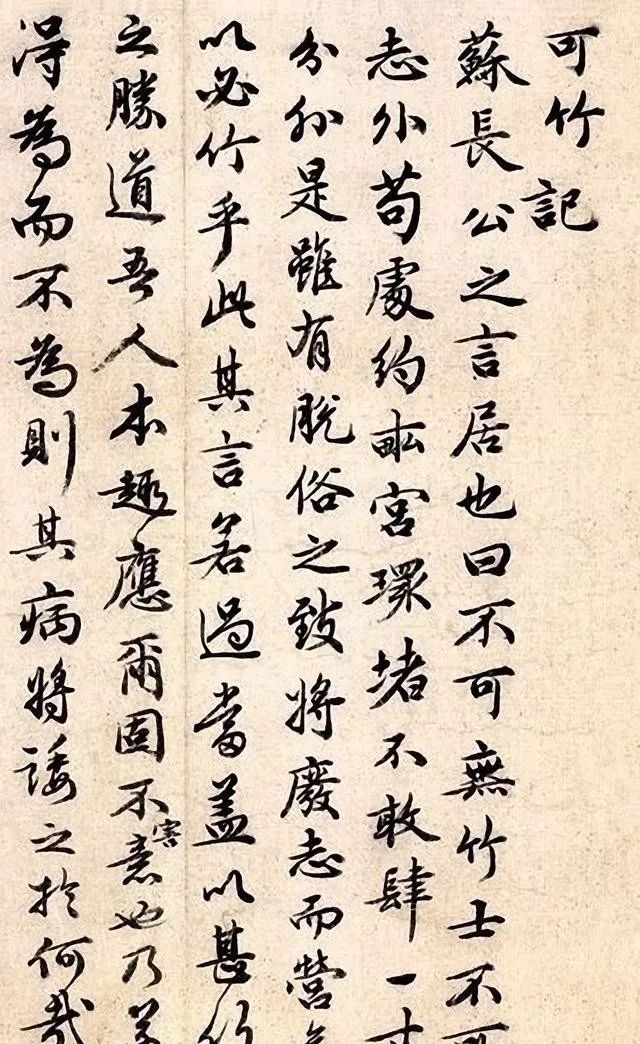 可竹記
蘇長公之言居也曰不可無竹士不可
志外苟處約畝宮環堵不敢肆一寸
分外是雖有脫俗之致將廢志而營
以必竹乎此其言若過當蓋以甚竹
之勝道吾人本趣應爾固不害意也乃若
得為而不為則其病將諉之於何哉